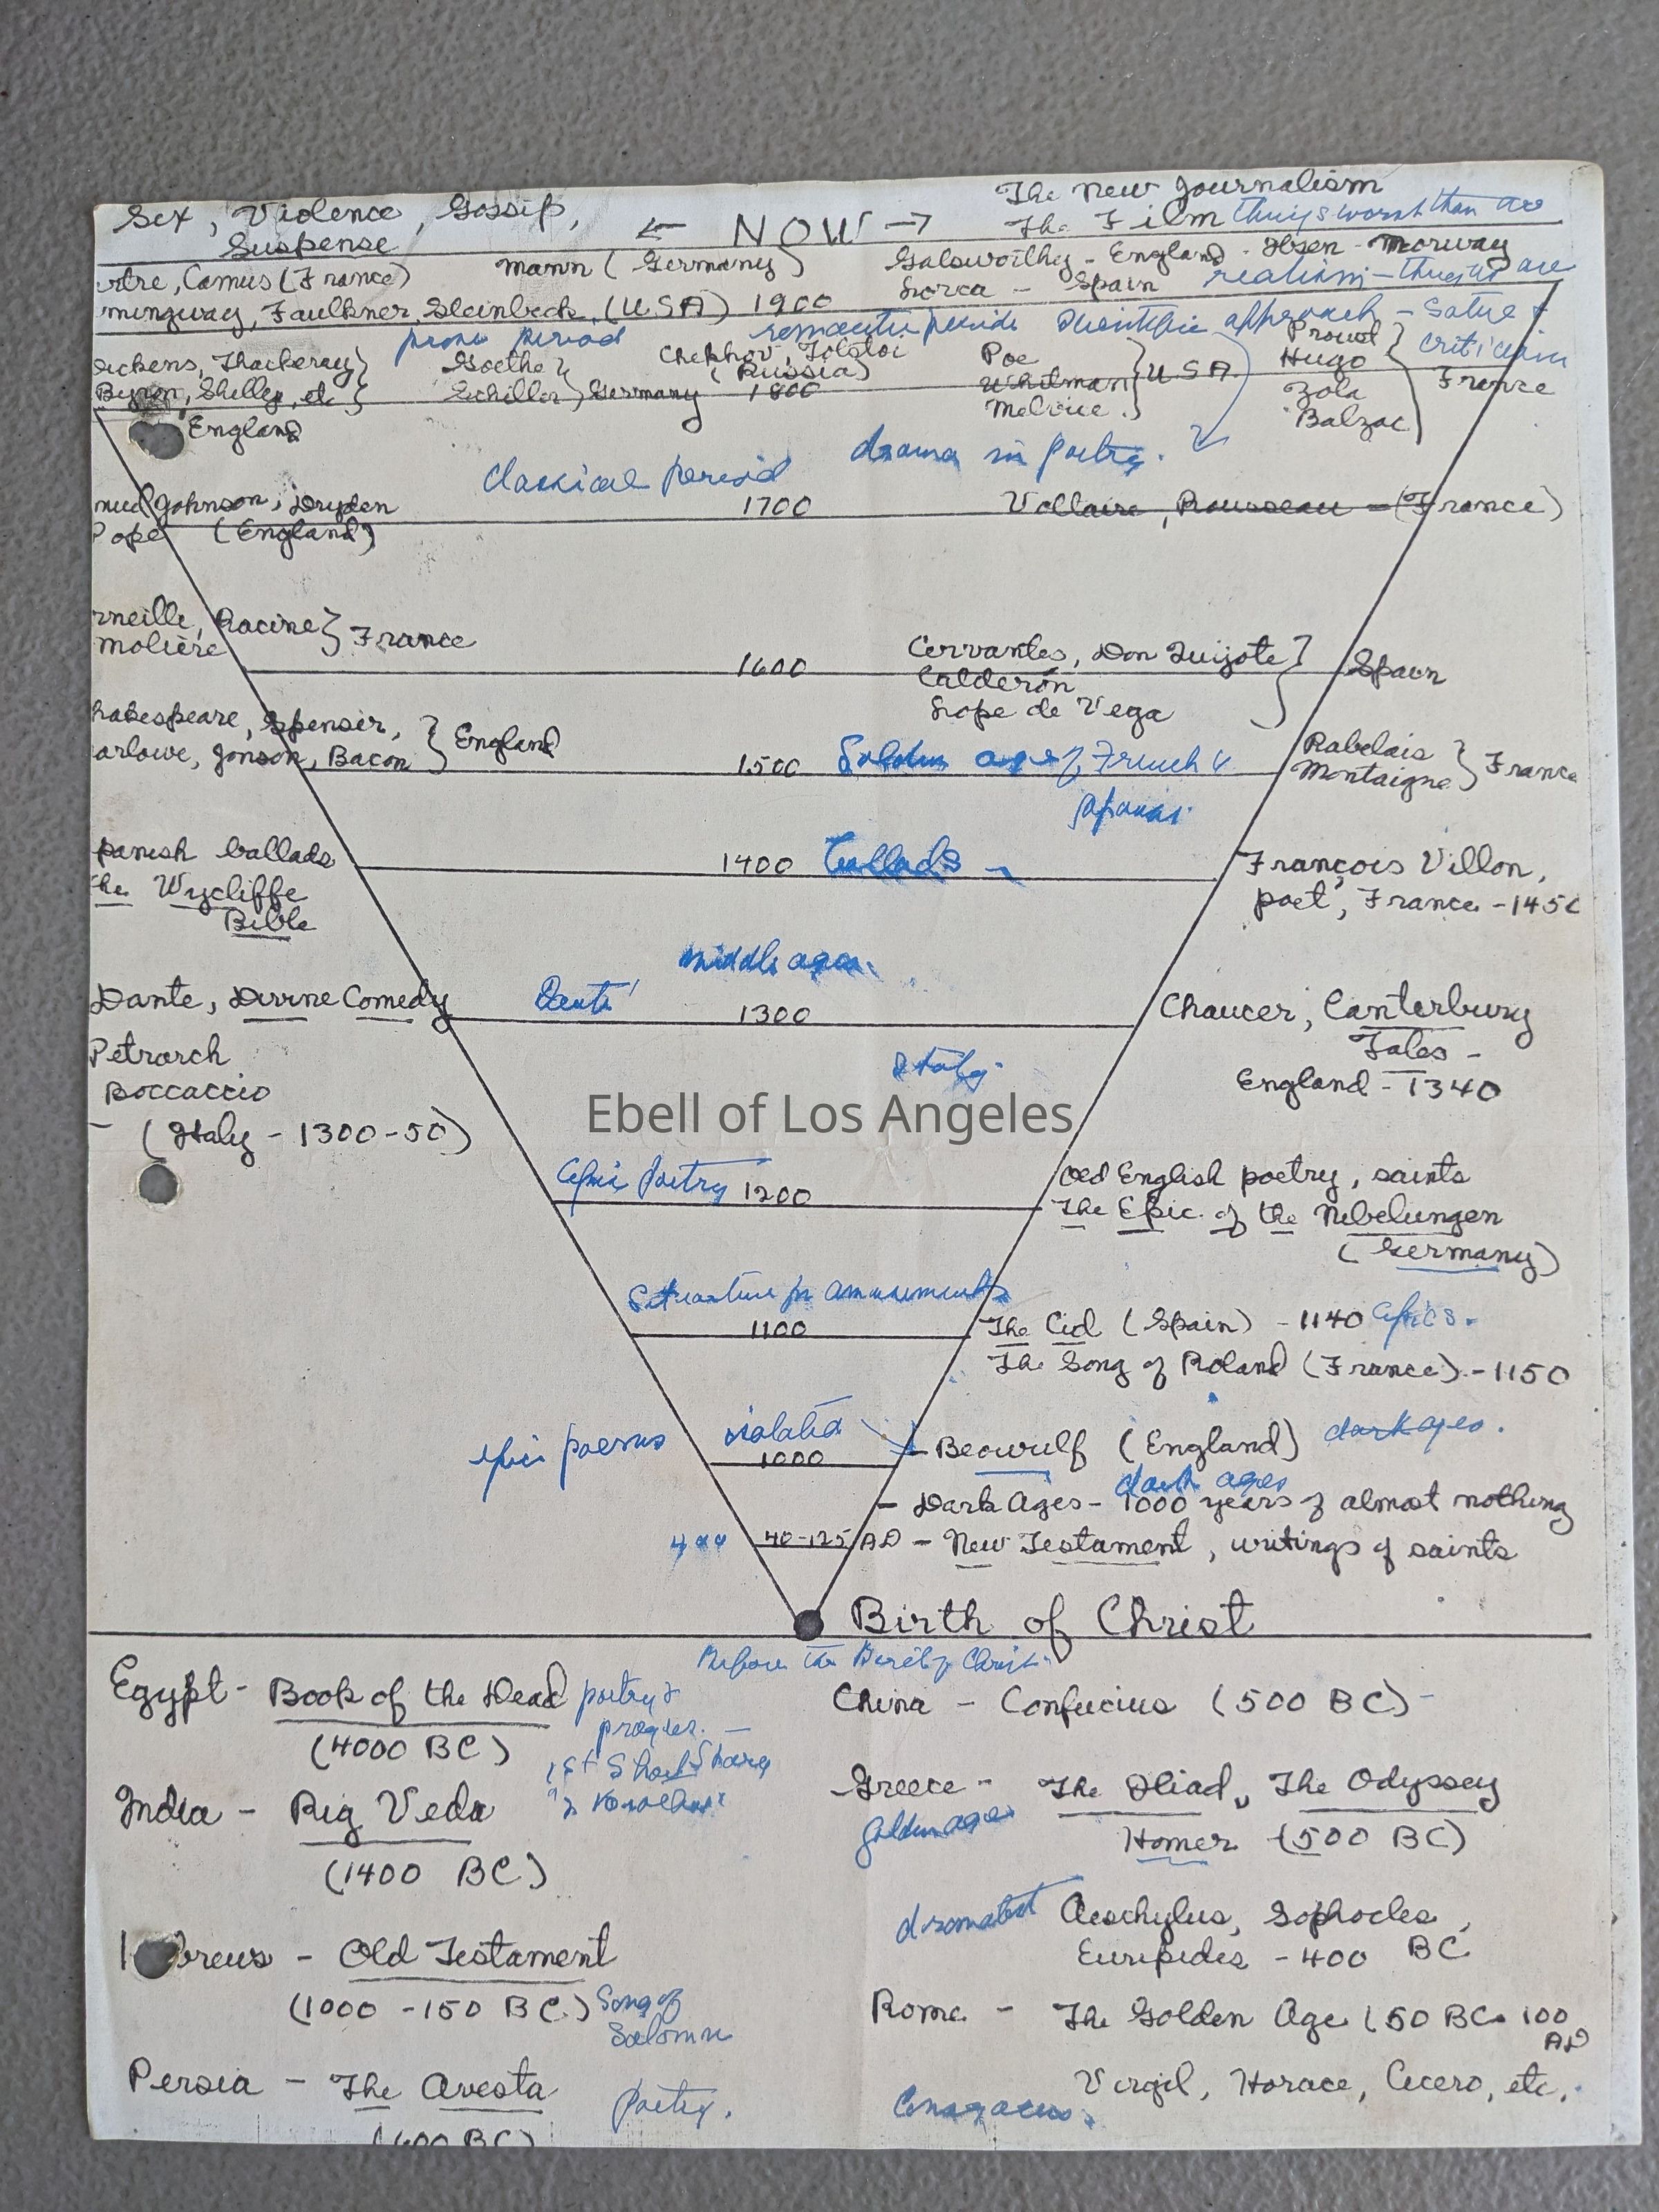 Sex, Violence, Gossip, ← NOW → The New Journalism
Suspense The Film things worst than are
rtre, Camus (France) Mann (Germany) Galsworthy - England - Ibsen - Norway
Lorca - Spain realism - things as are
mingway, Faulkner, Steinbeck, (USA) 1900
prose period romantic periode Scientific approach - Satire +
criticism
ickens, Thackeray Goethe Chekhov, Tolstoi Poe Proust
(Russia) Whitman USA Hugo
Byron, Shelley, etc Schiller Germany 1800 Melville Zola France
England Balzac
Classical period drama in poetry.
muel Johnson, Dryden 1700 Voltaire, Rousseau - (France)
Pope (England)
rneille, Racine France
Molière
1600 Cervantes, Don Quijote Spain
Calderón
Lope de Vega
hakespeare, Spenser, England
arlowe, Jonson, Bacon
1500 Golden age of French & Rabelais France
Montaigne
panish ballads 1400 ballads François Villon,
the Wycliffe poet, France - 145
Bible
middle ages.
Dante, Divine Comedy Dante 1300 Chaucer, Canterbury
Tales -
Petrarch Italy. England - 1340
Boccaccio
- (Italy - 1300-50)
Ebell of Los Angeles
Epic poetry 1200 Old English poetry, saints
The Epic of the Nibelungen
(Germany)
for amusement
1100 The Cid (Spain) - 1140 Epics.
The Song of Roland (France) - 1150
epic poems isolated
1000 - Beowulf (England) dark ages.
dark ages
- Dark Ages - 1000 years of almost nothing
400 40-125 AD - New Testament, writings of saints
Birth of Christ
Before the Birth of Christ
Egypt - Book of the Dead poetry &
(4000 BC) prayer. -
1st Short Story
India - Rig Veda
(1400 BC)
H breus - Old Testament
(1000 - 150 BC) Song of
Solomon
Persia - The Avesta poetry.
(600 BC)
China - Confucius (500 BC) -
Greece - The Iliad, The Odyssey
golden age Homer (500 BC)
dramatist Aeschylus, Sophocles,
Euripides - 400 BC
Rome - The Golden Age (50 BC. 100
AD
Virgil, Horace, Cicero, etc.